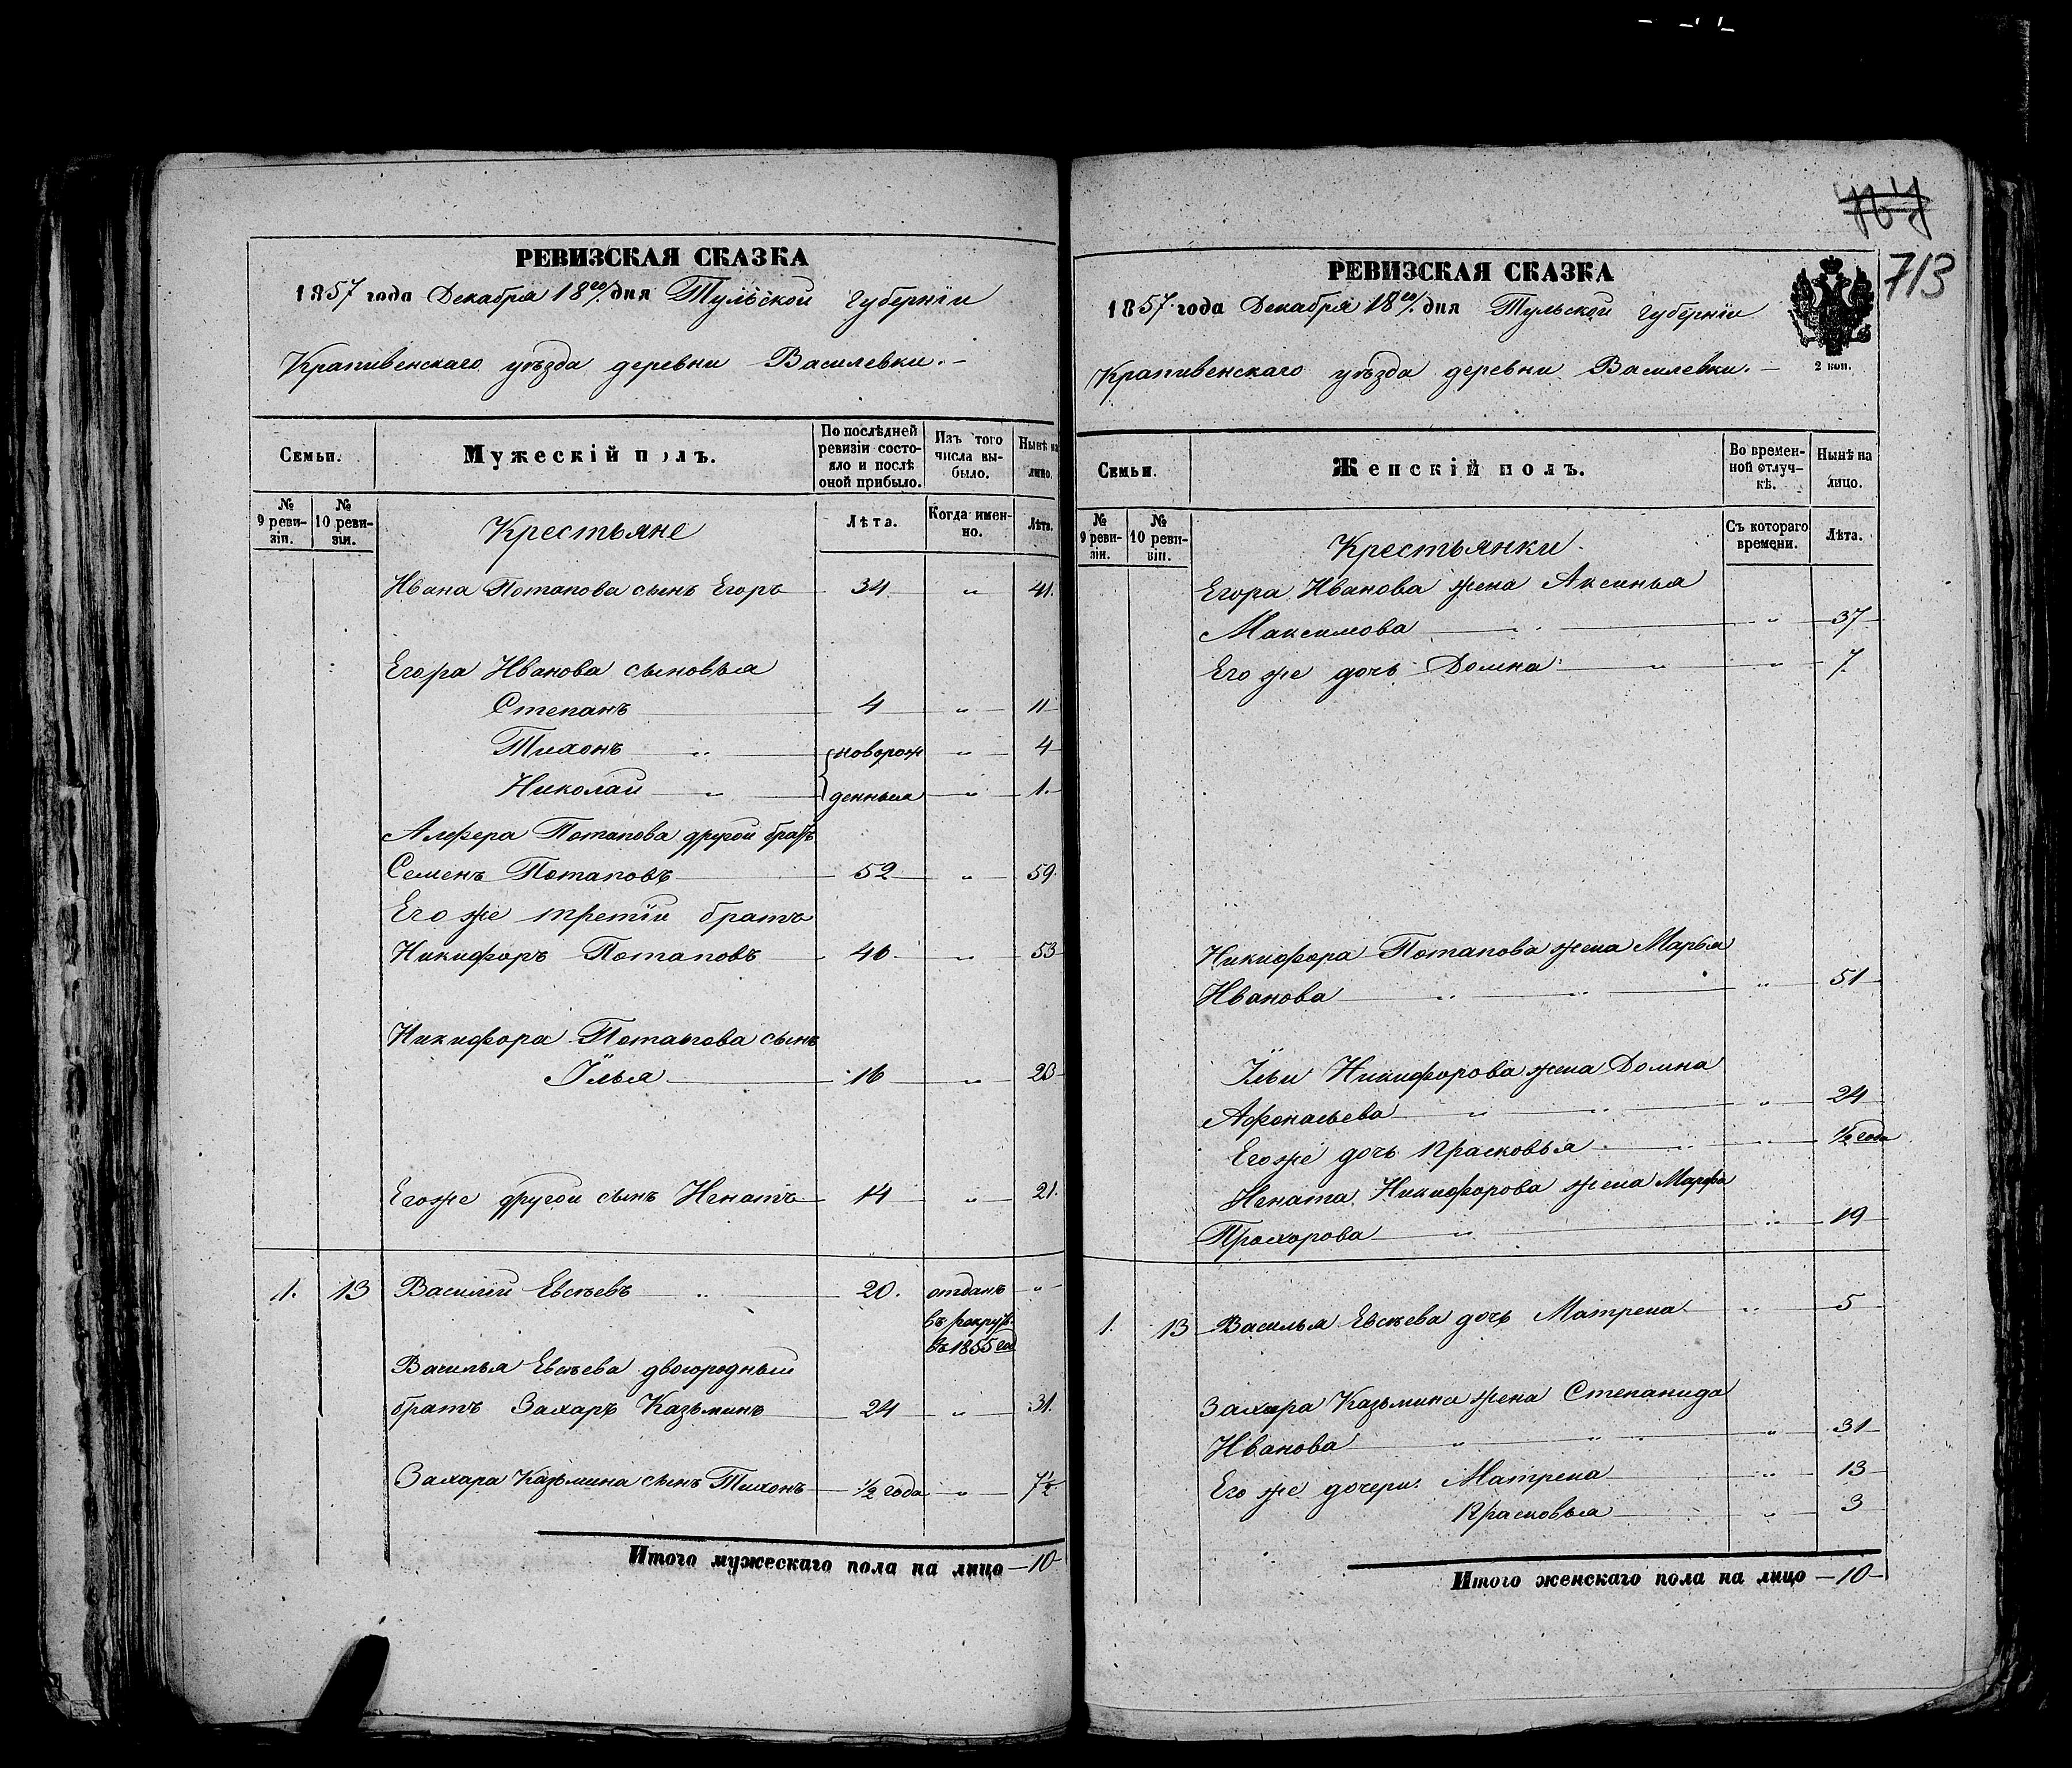 РЕВИЗСКАЯ СКАЗКА
1857 года Декабря 18го дня Тульской губерніи
Крапивенскаго уѣзда деревни Василевки.
Семьи.
Мужескій полъ.
По послѣдней ревизіи состояло и послѣ оной прибыло.
Изъ того числа выбыло.
Нынѣ на лицо.
№ 9 ревизіи.
№ 10 ревизіи.
Крестьяне
Лѣта.
Когда именно.
Лѣта.
Ивана Потапова сынъ Егоръ 34 " 41.
Егора Иванова сыновья
Степанъ 4 " 11
Тихонъ " новорож " 4
Николай " денныя " 1.
Алфера Потапова другой братъ
Семенъ Потаповъ 52 " 59.
Его же третій братъ
Никифоръ Потаповъ 46 " 53
Никифора Потапова сынъ
Илья 16 " 23
Егоже другой сынъ Игнатъ 14 " 21.
11. 13 Василій Евсѣевъ " 20. отданъ "
въ рекруты
въ 1855 год
Василья Евсѣева двоюродный
братъ Захаръ Казьминъ 24 " 31.
Захара Казьмина сынъ Тихонъ ½ года " 7½
Итого мужескаго пола на лицо 10
713
РЕВИЗСКАЯ СКАЗКА
1857 года Декабря 18го дня Тульской губерніи
Крапивенскаго уѣзда деревни Василевки.
2 коп.
Семьи.
Женскій полъ.
Во временной отлучкѣ.
Нынѣ на лицо.
№ 9 ревизіи.
№ 10 ревизіи.
Крестьянки
Съ котораго времени.
Лѣта.
Егора Иванова жена Аксинья
Максимова " 37
Его же дочь Домна " " 7.
Никифора Потапова жена Марья
Иванова " " " 51
Ильи Никифорова жена Домна
Афонасьева " " " 24
Егоже дочь Прасковья " " ½ года
Игната Никифорова жена Марфа
Прохорова " " 19
1. 13 Василья Евсѣева дочь Матрена " 5
Захара Казьмина жена Степанида
Иванова " " " 31
Его же дочери: Матрена " 13
Прасковья " 3
Итого женскаго пола на лицо 10